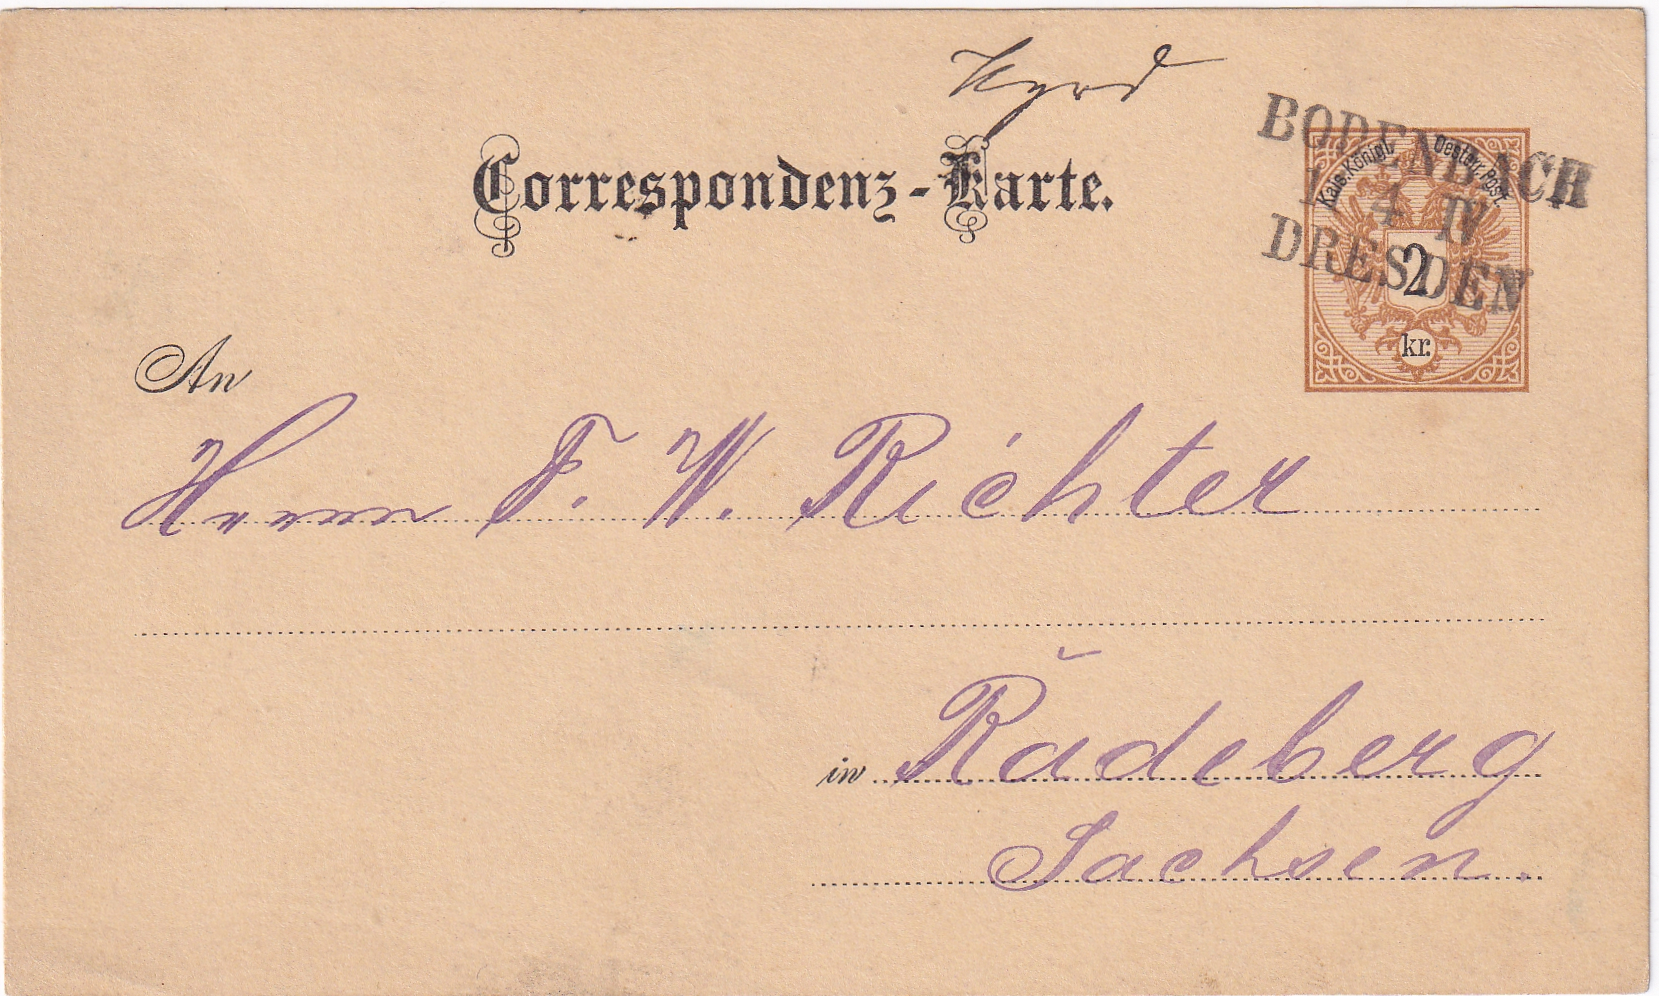 Correspondenz-Karte.
BODENBACH
4 IV
DRESDEN
Kais. Königl. Oesterr. Post.
2
kr.
An
Herrn F. W. Richter
in Radeberg
Sachsen.